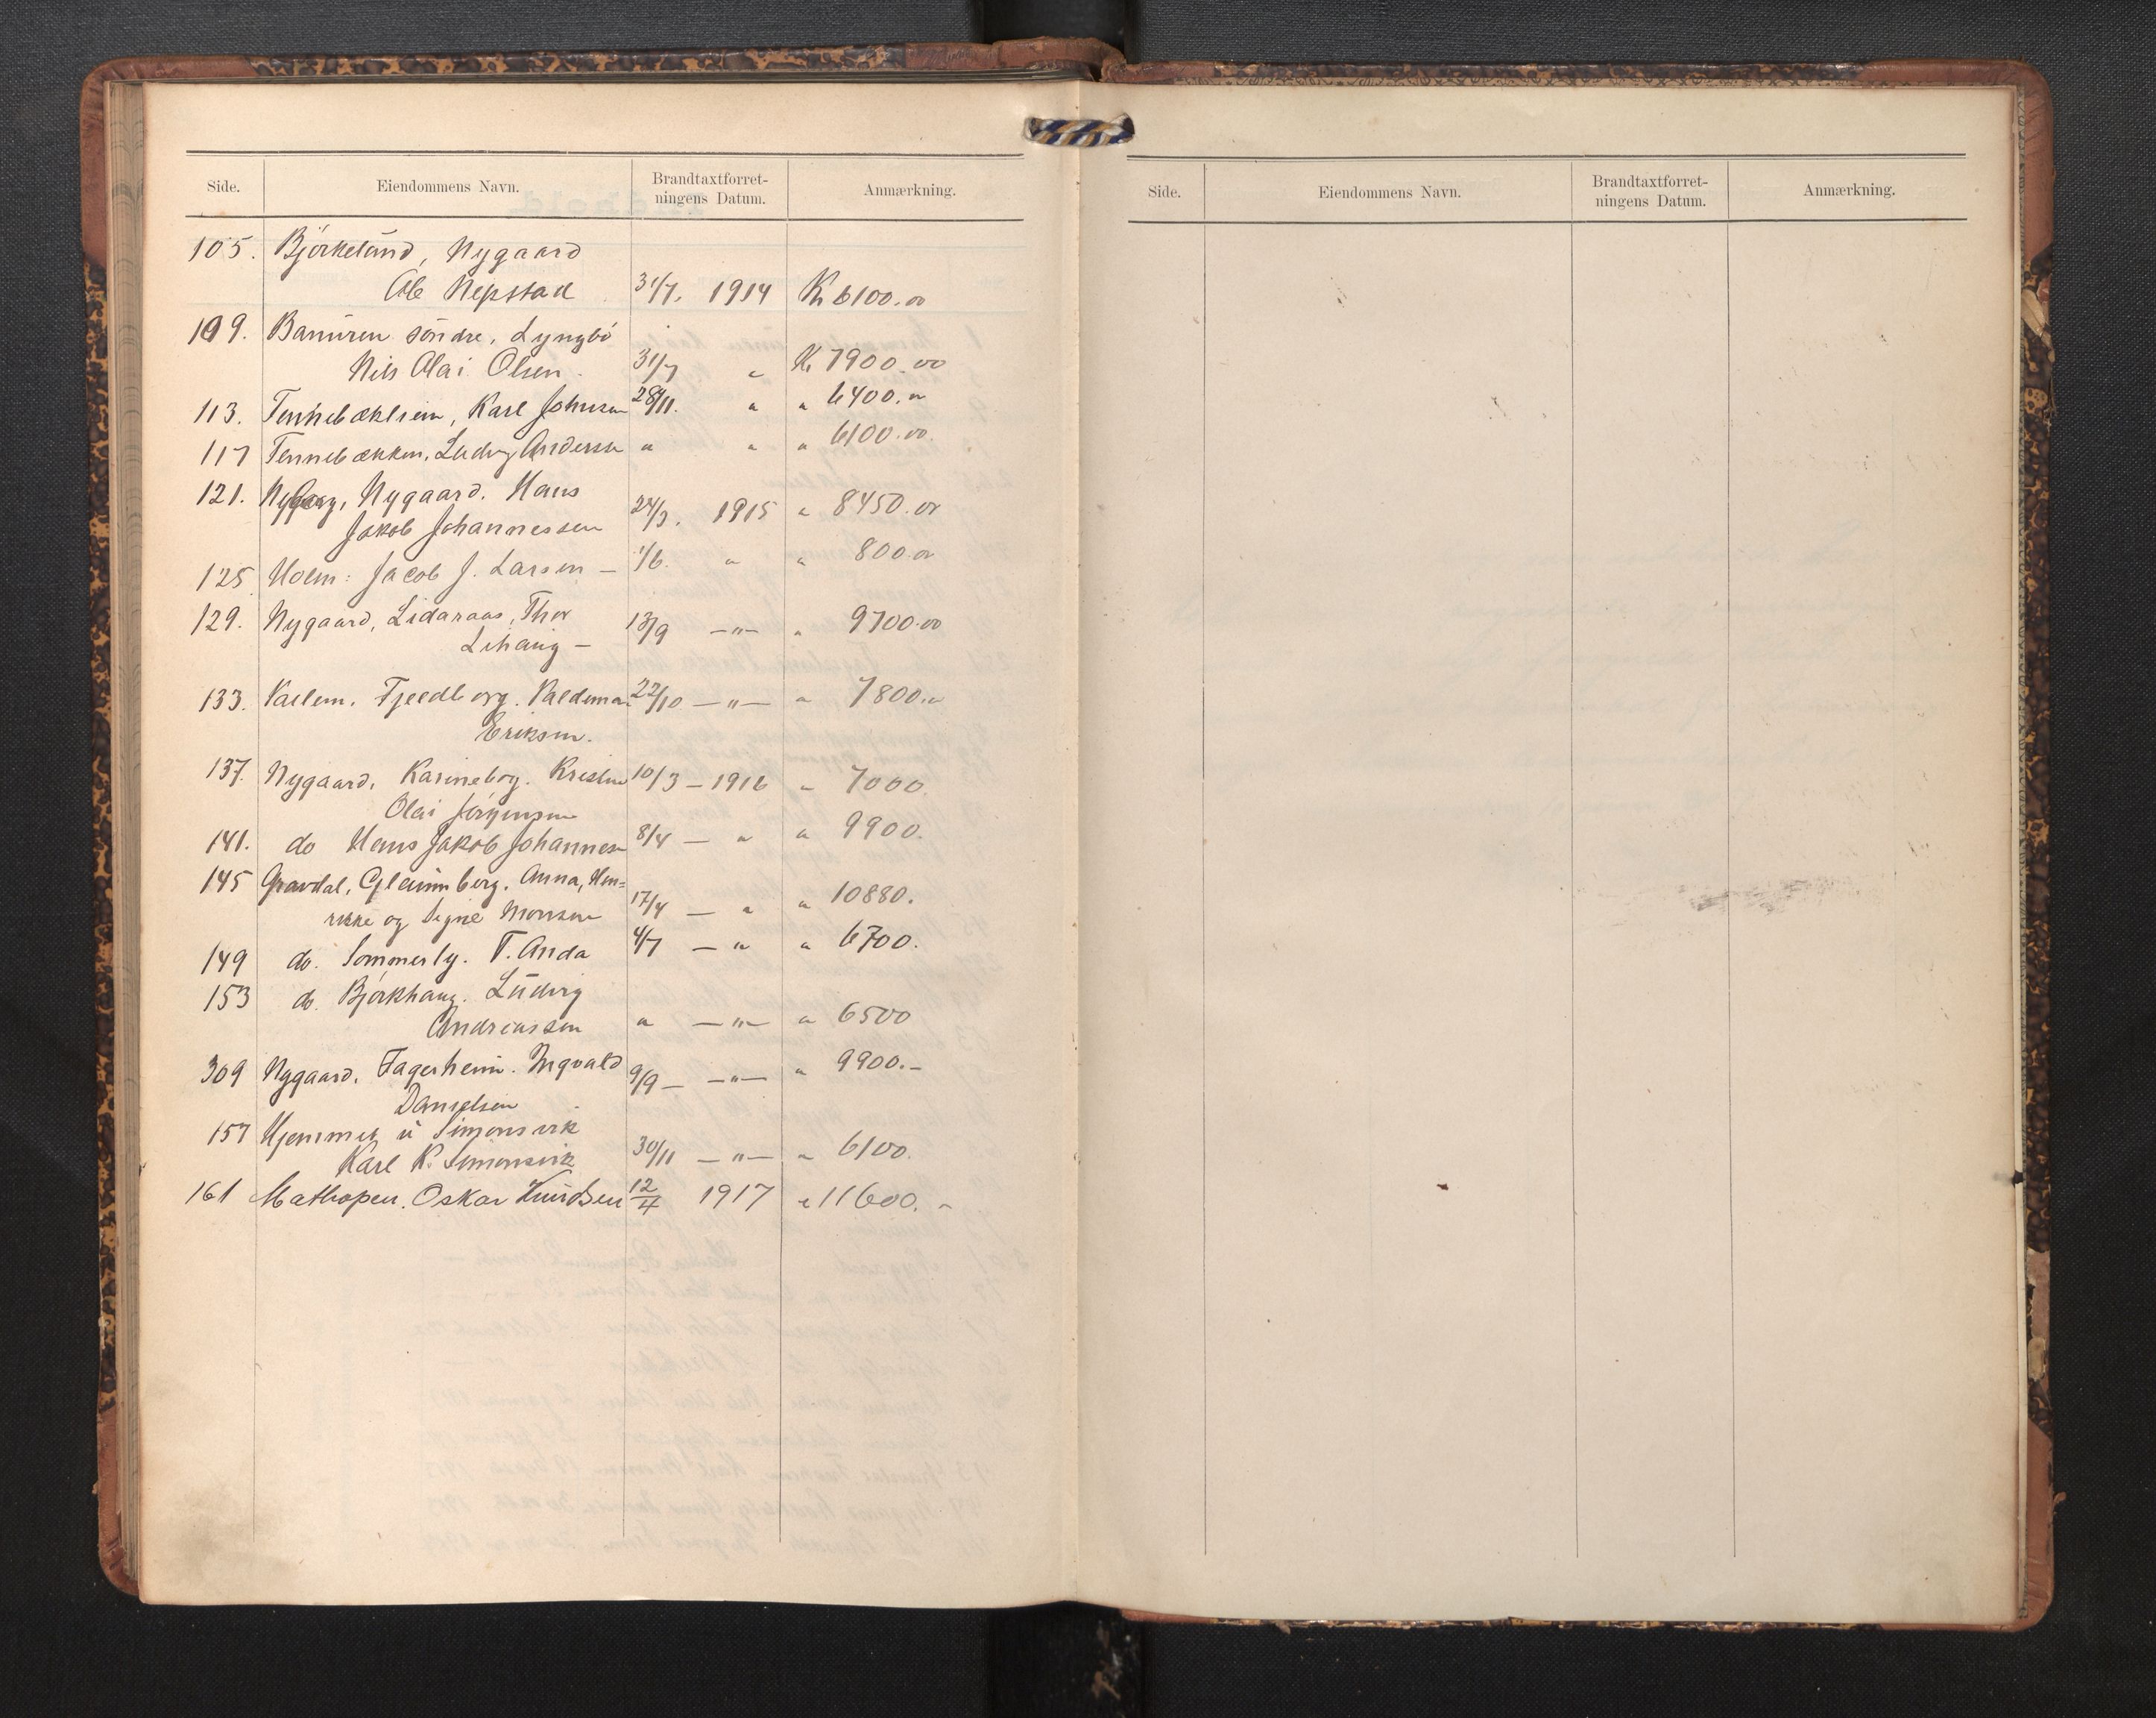 Side. Eiendommens Navn. Brandtaxtforret-ningens Datum. Anmærkning.
105. Björkeland, Nygaard
Ole Nepstad 31/7. 1914 Kr 6100.00
109. Bamüren söndre, Lyngbö
Nils Olai Olsen. 31/7 " Kr 7900.00
113. Karl Johnsen 28/11. " " 6400.00
117 Tennebækken, Ludvig Anderssen " " " 6100.00.
121. Nygaard. Hans
Jakob Johannessen 24/3. 1915 " 8450.00
125 Holm: Jacob J. Larsen – 1/6. " " 800.00
129. Nygaard, Lidaraas, Thor
Lihaug – 13/9 –"– " 9700.00
133. Fjeldborg. Valdemar 22/10 –"– " 7800.00
Eriksen.
137. Nygaard, Karineborg. Kristen 10/3 – 1916 " 7000.
Olai Jörgensen
141. do Hans Jakob Johannesen 8/4 – " " 9900.
145 Gravdal, Anna, Hen=
rikke og Signe Monsen 17/4 – " " 10880.
149 do. Sommerly. T. Anda 4/7 – " " 6700.
153 do. Björkhaug. Lüdvig
Andreassen " –"– " 6500
309 Nygaard, Fagerheim. Ingvald 9/9 – –"– " 9900.–
Danielsen
157 Hjemmet i Simonsvik
Karl K. Simonsvik 30/11 –"– " 6100.
161 Mathopen. Oskar Knudsen 12/4 1917 " 11600. –
Side. Eiendommens Navn. Brandtaxtforret-ningens Datum. Anmærkning.